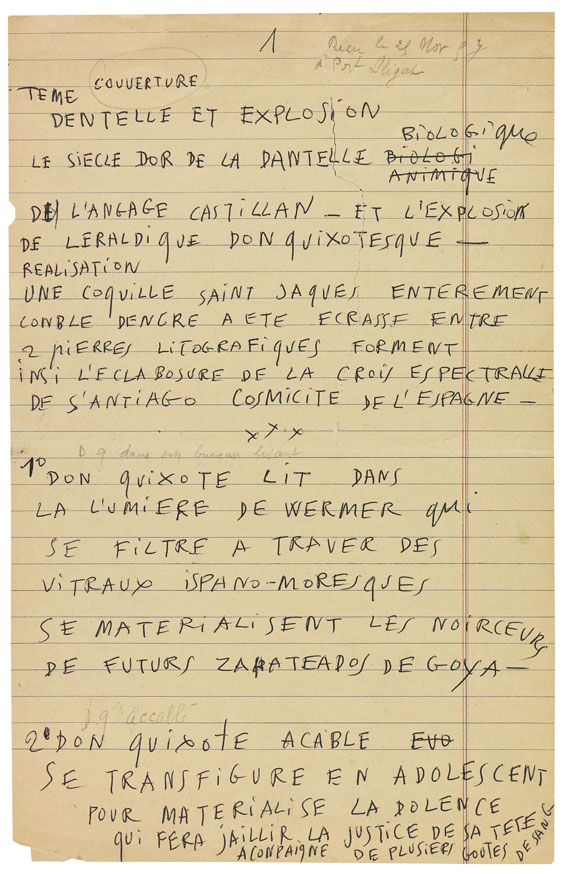 1
Reçu le 25 Nov 57
à Port Lligat
COUVERTURE
TEME
DENTELLE ET EXPLOSION
BIOLOGIQUE
LE SIECLE DOR DE LA DANTELLE BIOLOGI
ANIMIQUE
DU L'ANGAGE CASTILLAN — ET L'EXPLOSION
DE LERALDIQUE DON QUIXOTESQUE —
REALISATION
UNE COQUILLE SAINT JAQUES ENTEREMENT
CONBLE DENCRE A ETE ECRASSE ENTRE
2 PIERRES LITOGRAFIQUES FORMENT
INSI L'ECLABOSURE DE LA CROIS ESPECTRALLE
DE S'ANTIAGO COSMICITE DE L'ESPAGNE —
x x . x
D q dans son bureau lisant
1º DON QUIXOTE LIT DANS
LA L'UMIERE DE WERMER QUI
SE FILTRE A TRAVER DES
VITRAUX ISPANO-MORESQUES
SE MATERIALISENT LES NOIRCEURS
DE FUTURS ZAPATEADOS DE GOYA —
D q accablé
2º DON QUIXOTE ACABLE EVO
SE TRANSFIGURE EN ADOLESCENT
POUR MATERIALISE LA DOLENCE
QUI FERA JAILLIR LA JUSTICE DE SA TETE
ACONPAIGNE DE PLUSIERS GOUTES DE SANG